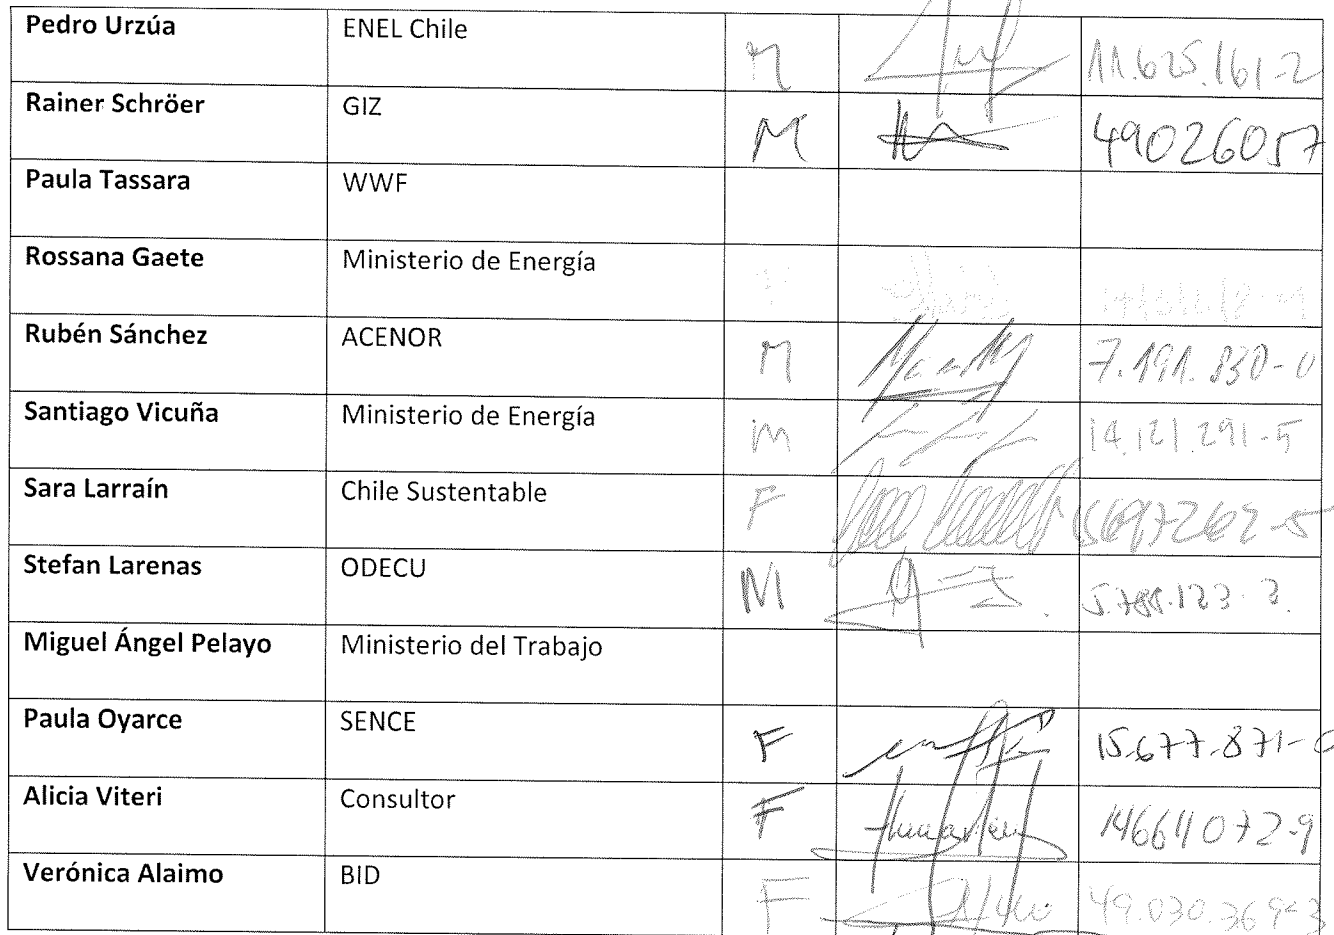 Pedro Urzúa ENEL Chile M 11.625.161-2
Rainer Schröer GIZ M 49026057
Paula Tassara WWF
Rossana Gaete Ministerio de Energía
Rubén Sánchez ACENOR M 7.191.830-0
Santiago Vicuña Ministerio de Energía m 14.121.291-5
Sara Larraín Chile Sustentable F
Stefan Larenas ODECU M
Miguel Ángel Pelayo Ministerio del Trabajo
Paula Oyarce SENCE F
Alicia Viteri Consultor F
Verónica Alaimo BID F 49.030.369-3